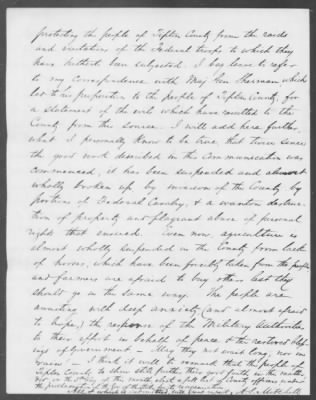 protecting the people of Tuplen County from the raids
and visitations of the Federal troops to which they
have hitherto been subjected. I beg leave to refer
to my correspondence with Maj Gen Sherman which
led to his proposition to the people of Tuplen County, for
a statement of the evils which have resulted to the
County from this source. I will add here further,
what I personally know to be true, that twice since
the good work described in the communication was
commenced, it has been suspended and almost
wholly broken up by invasion of the County by
portions of Federal Cavalry, & a wanton destruc-
tion of property and flagrant abuse of personal
rights that ensued. Even now, agriculture is
almost wholly suspended in the County from lack
of horses, which have been forcibly taken from the people,
and farmers are afraid to buy others lest they
should go in the same way. The people are
awaiting with deep anxiety (and almost afraid
to hope,) the response of the Military Authorities
to their effort in behalf of peace & the restored bless-
ings of government. May they not wait long, nor in
vain. I think it will be remarked that the people of
County to show still further their good faith in the matter,
on the of this month elect a full list of County officers under
the
All of which is submitted